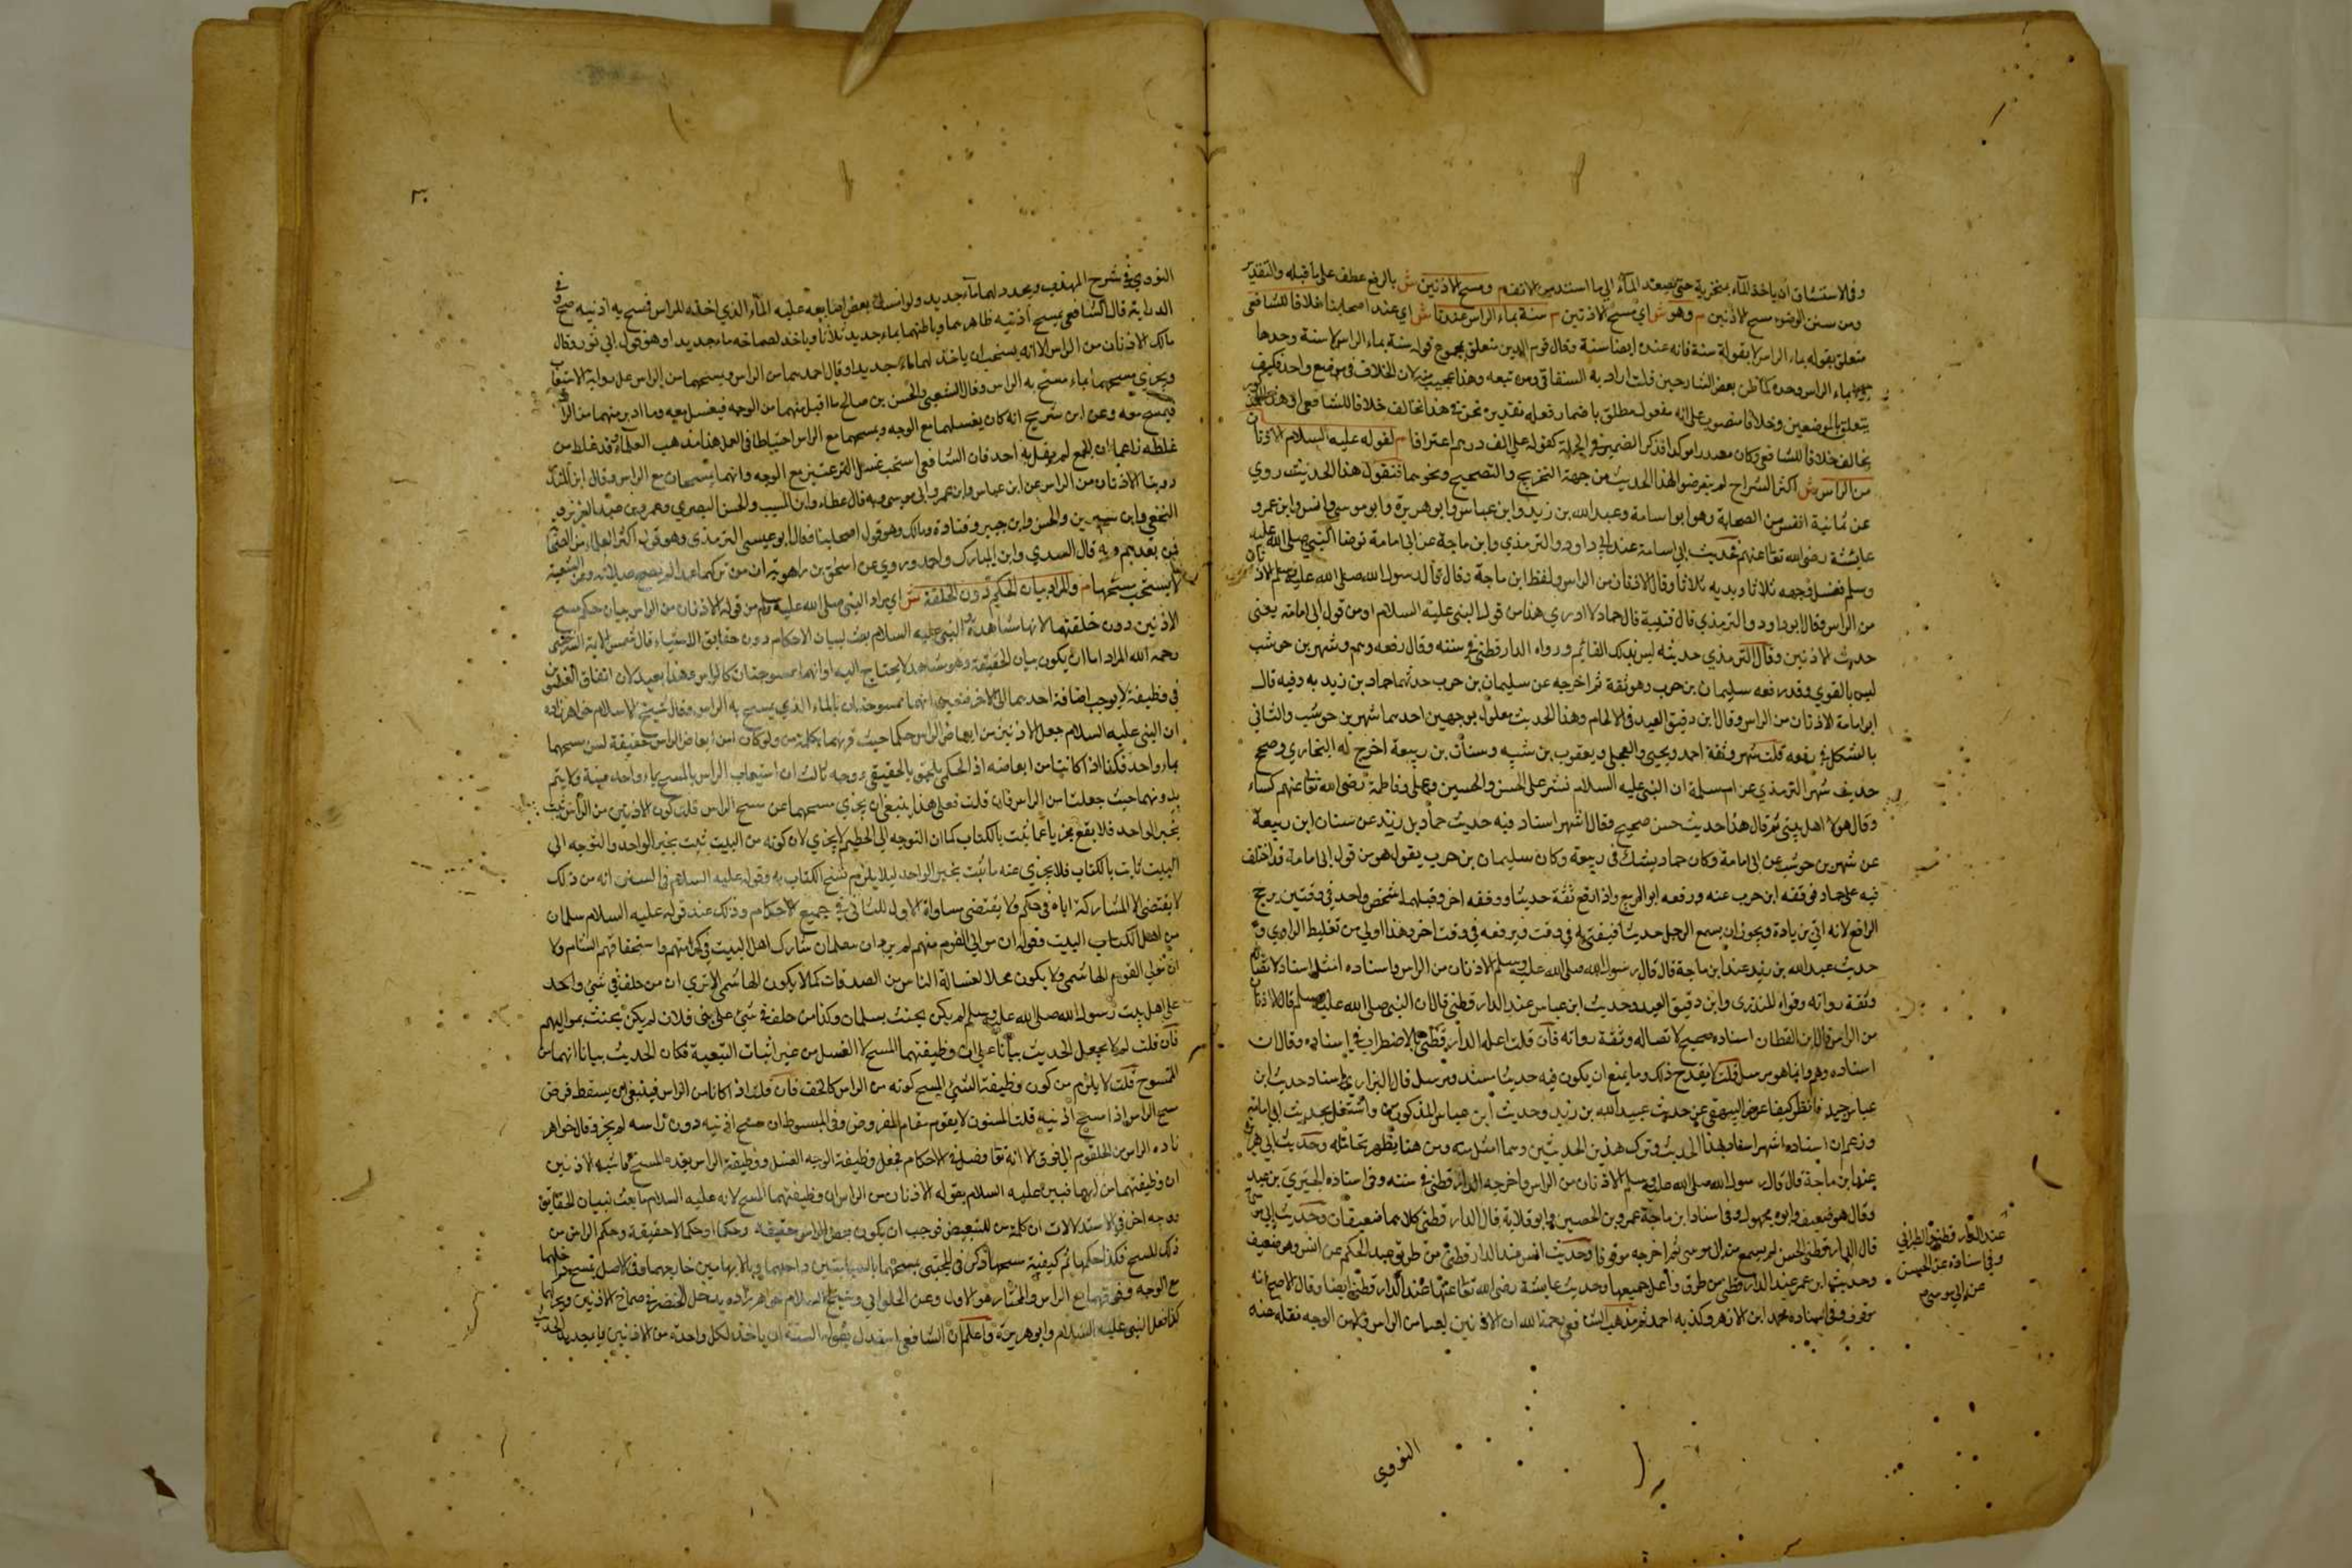 وفي الاستنشاق ان ياخذ الماء بمنخريه حتى يصعد الماء الى ما استد من الانف م ومسح الاذنين ش بالرفع عطف على ما قبله والتقدير
ومن سنن الوضوء مسح الاذنين م وهو ش اي مسح الاذنين م سنة بماء الراس عندنا ش اي عند اصحابنا خلافا للشافعي
متعلق بقوله بماء الراس لا بقوله سنة فانه عنده ايضا سنة وقال قوام الدين متعلق بمجموع قوله سنة بماء الراس لا سنة وحدها
بماء الراس وحده كما ظن بعض الشارحين قلت اراد به السغناقي ومن تبعه وهذا عجيب منه لان الخلاف في موضع واحد فكيف
يتعلق بالموضعين وخلافا منصوب على انه مفعول مطلق باضمار فعله تقديره نحن في هذا نخالف خلافا للشافعي او هذا
يخالف خلافا للشافعي وكان مصدرا موكدا قد ذكر الضمير في الجملة كقوله علي الف درهم اعترافا م لقوله عليه السلام الاذنان
من الراس ش اكثر الشراح لم يتعرضوا لهذا الحديث من جهة التخريج والتصحيح ونحوهما فنقول هذا الحديث روي
عن ثمانية انفس من الصحابة وهو ابو اسامة وعبد الله بن زيد وابن عباس وابو هريرة وابو موسى وانس وابن عمر و
عايشة رضي الله تعا عنهم فحديث ابي اسامة عند ابي داود والترمذي وابن ماجة عن ابي امامة توضا النبي صلى الله عليه
وسلم فغسل وجهه ثلاثا ويديه ثلاثا وقال الاذنان من الراس ولفظ ابن ماجة وقال قال رسول الله صلى الله عليه وسلم الاذنان
من الراس وقال ابو داود والترمذي قال قتيبة قال حماد لا ادري هذا من قول النبي عليه السلام او من قول ابي امامة يعني
حديث الاذنين وقال الترمذي حديثه ليس بذلك القايم ورواه الدارقطني في سننه وقال رفعه وهم وشهر بن حوشب
ليس بالقوي وقد رفعه سليمان بن حرب وهو ثقة ثم اخرجه عن سليمان بن حرب حدثنا حماد بن زيد به وفيه قال
ابو امامة الاذنان من الراس وقال ابن دقيق العيد في الالمام وهذا الحديث معلول بوجهين احدهما شهر بن حوشب والثاني
بالشك في رفعه قلت شهر وثقه احمد ويحيى والعجلي ويعقوب بن شيبه وسنان بن ربيعة اخرج له البخاري وصحح
حديث شهر الترمذي عن ام سلمة ان النبي عليه السلام نشر على الحسن والحسين وعلي وفاطمة رضي الله تعا عنهم كساء
وقال هولاء اهل بيتي ثم قال هذا حديث حسن صحيح وقال اشهر اسناد فيه حديث حماد بن زيد عن سنان ابن ربيعة
عن شهر بن حوشب عن ابي امامة وكان حماد يشك في ربيعة وكان سليمان بن حرب يقول هو من قول ابي امامة قد اختلف
فيه على حماد فوقفه ابن حرب عنه ورفعه ابو الربيع واذا رفع ثقة حديثا ووقفه اخر وقبلهما شخص واحد في وقتين يرجح
الرافع لانه اتى بزيادة ويجوز ان يسمع الرجل حديثا فيفتي به في وقت ويرفعه في وقت اخر وهذا اولى من تغليط الراوي و
حديث عبد الله بن زيد عند ابن ماجة قال قال رسول الله صلى الله عليه وسلم الاذنان من الراس واسناده امثل اسناد لاتصاله
وثقة رواته وقواه المنذري وابن دقيق العيد وحديث ابن عباس عند الدارقطني قال ان النبي صلى الله عليه وسلم قال الاذنان
من الراس قال ابن القطان اسناده صحيح لاتصاله وثقة رواته فان قلت اعله الدارقطني بالاضطراب في اسناده وقال ان
اسناده وهم وانما هو مرسل قلت لا يقدح ذلك وما يمنع ان يكون فيه حديثا مسند ومرسل قال البزار في اسناد حديث ابن
عباس جيد فانظر كيف اعرض البيهقي عن حديث عبد الله بن زيد وحديث ابن عباس المذكورين واشتغل بحديث ابي امامة
وزعم ان اسناده اشهر اسناد لهذا الحديث وترك هذين الحديثين وهما امثل منه ومن هنا يظهر تحامله وحديث ابي هريرة
عند ابن ماجة قال قال رسول الله صلى الله عليه وسلم الاذنان من الراس واخرجه الدارقطني في سننه وفي اسناده البختري بن عبيد
وقال هو ضعيف وابوه مجهول وفي اسناد ابن ماجة عمرو بن الحصين وابو قلابة قال الدارقطني كلاهما ضعيفان وحديث ابي موسى
قال الدارقطني الحسن لم يسمع من ابي موسى ثم اخرجه موقوفا وحديث انس عند الدارقطني من طريق عبد الحكم عن انس وهو ضعيف
وحديث ابن عمر عند الدارقطني من طرق واعل جميعها وحديث عايشة رضي الله تعا عنها عند الدارقطني ايضا وقال الاصح انه
موقوف وفي اسناده محمد ابن الازهر وكذبه احمد ثم مذهب الشافعي رحمه الله ان الاذنين ليسا من الراس ولا من الوجه نقله عنه
عند الدارقطني والطبراني
وفي اسناده عن الحسن
عن ابي موسى
النووي
٣٠
النووي في شرح المهذب ويجدد لهما ماء جديد ولو امسك بعض اصابعه عليه الماء الذي اخذه للراس فمسح به اذنيه صح
الدراية قال الشافعي يمسح اذنيه ظاهرهما وباطنهما بماء جديد ثلاثا وياخذ لصماخه ماء جديدا وهو قول ابي ثور وقال
مالك الاذنان من الراس الا انه يستحب ان ياخذ لهما ماء جديدا وقال احمد هما من الراس ويمسحهما من الراس على رواية الاستيعاب
ويجزي مسحهما بماء مسح به الراس وقال الشعبي والحسن بن صالح ما اقبل منهما من الوجه فيغسل معه وما ادبر منهما من الراس
فيمسح معه وعن ابن سريج انه كان يغسلهما مع الوجه ويمسحهما مع الراس احتياطا في العمل هذا مذهب العلماء وقد غلط من
غلطه زاعما ان الجمع لم يقل به احد فان الشافعي استحب غسل النزعتين مع الوجه وانهما يمسحان مع الراس وقال ابن المنذر
روينا الاذنان من الراس عن ابن عباس وابن عمر وابي موسى وبه قال عطاء وابن المسيب والحسن البصري وعمر بن عبد العزيز و
النخعي وابن سيرين والحسن وابن جبير وقتادة ومالك وهو قول اصحابنا قال ابو عيسى الترمذي وهو قول اكثر العلماء من الصحابة
فمن بعدهم وبه قال السدي وابن المبارك واحمد وروي عن اسحق بن راهويه ان من تركهما عمدا لم تصح صلاته وعن الشيعة
لا يستحب مسحهما م والمراد بيان الحكم دون الخلقة ش اي مراد النبي صلى الله عليه وسلم من قوله الاذنان من الراس بيان حكم مسح
الاذنين دون خلقتهما لانها مشاهدة النبي عليه السلام بعث لبيان الاحكام دون حقايق الاشياء قال شمس الايمة السرخسي
رحمه الله المراد اما ان يكون بيان الحقيقة وهو مشاهد لا يحتاج اليه او انهما ممسوحتان كالراس وهذا بعيد لان اتفاق العضوين
في وظيفة لا يوجب اضافة احدهما الى الاخر فتعين انهما ممسوحتان بالماء الذي يمسح به الراس وقال شيخ الاسلام خواهر زاده
ان النبي عليه السلام جعل الاذنين من ابعاض الراس حكما حيث قرنهما بكلمة من ولو كان من ابعاض الراس حقيقة لسن مسحهما
بماء واحد فكذا اذا كانتا من ابعاضه اذ الحكمي يلحق بالحقيقي ووجه ثالث ان استيعاب الراس بالمسح بماء واحد سنة ولا يتم
بدونهما حيث جعلتا من الراس فان قلت فعلى هذا ينبغي ان يجزي مسحهما عن مسح الراس قلت كون الاذنين من الراس ثبت
بخبر الواحد فلا يقع مجزيا عما ثبت بالكتاب كما ان التوجه الى الحطيم لا يجزي لان كونه من البيت ثبت بخبر الواحد والتوجه الى
البيت ثابت بالكتاب فلا يجزي عنه ما ثبت بخبر الواحد ليلا يلزم نسخ الكتاب به وقوله عليه السلام في السنن انه من ذلك
لا يقتضي الا المشاركة اياه في حكم ولا يقتضي مساواة الاول للثاني في جميع الاحكام وذلك عند قوله عليه السلام سلمان
من اهل الكتاب البيت وقوله ان موالي القوم منهم لم يرد ان سلمان شارك اهل البيت في كرامتهم واستحقاقهم السهام ولا
ان مولى القوم الهاشمي ولا يكون محلا لغسالة الناس من الصدقات كما لا يكون الهاشمي الا ترى ان من حلف في شيء واحد
على اهل بيت رسول الله صلى الله عليه وسلم لم يكن يحنث بسلمان وكذا من حلف في شيء على بني فلان لم يكن يحنث بمواليهم
فان قلت لم لا يجعل الحديث بيانا على ان وظيفتهما المسح لا الغسل من غير اثبات التبعية فكان الحديث بيانا انهما من
الممسوح قلت لا يلزم من كون وظيفة الشيء المسح كونه من الراس كالخف فان قلت اذا كانا من الراس فينبغي ان يسقط فرض
مسح الراس اذا مسح اذنيه قلت المسنون لا يقوم مقام المفروض وفي المبسوط ان مسح اذنيه دون راسه لم يجز وقال خواهر
زاده الراس من الحلقوم الى فوق الا انه تعا فصل في الاحكام فجعل وظيفة الوجه الغسل ووظيفة الراس بعده المسح فاشبه الاذنين
ان وظيفتهما من ايهما فبين عليه السلام بقوله الاذنان من الراس ان وظيفتهما المسح لانه عليه السلام ما بعث لبيان الحقايق
ووجه اخر في الاستدلالات ان كلمة من للتبعيض فوجب ان يكون بعض الراس حقيقة وحكما او حكما لا حقيقة وحكم الراس من
ذلك المسح فكذا حكمهما ثم كيفية مسحهما ذكر في المجتبى يمسحهما بالسبابتين داخلهما وبالابهامين خارجهما وفي الاصل يمسح داخلهما
مع الوجه وفوقهما مع الراس والمختار هو الاول وعن الحلواني وشيخ الاسلام خواهر زاده يدخل الخنصر في صماخ الاذنين ويحركهما
كذا فعل النبي عليه السلام وابو هريرة واعلم ان الشافعي استدل بقوله السنة ان ياخذ لكل واحدة من الاذنين ماء جديدا